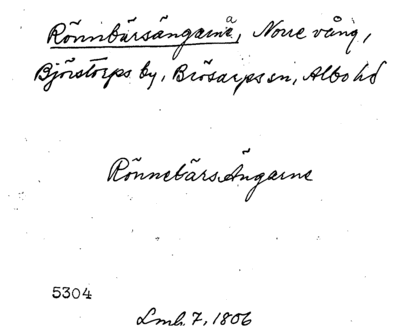 Rönnbärsängarna, Norre vång,
Björstorps by, Brösarps sn, Albo hd
RönnebärsÄngarne
5304
Lmh. 7, 1806